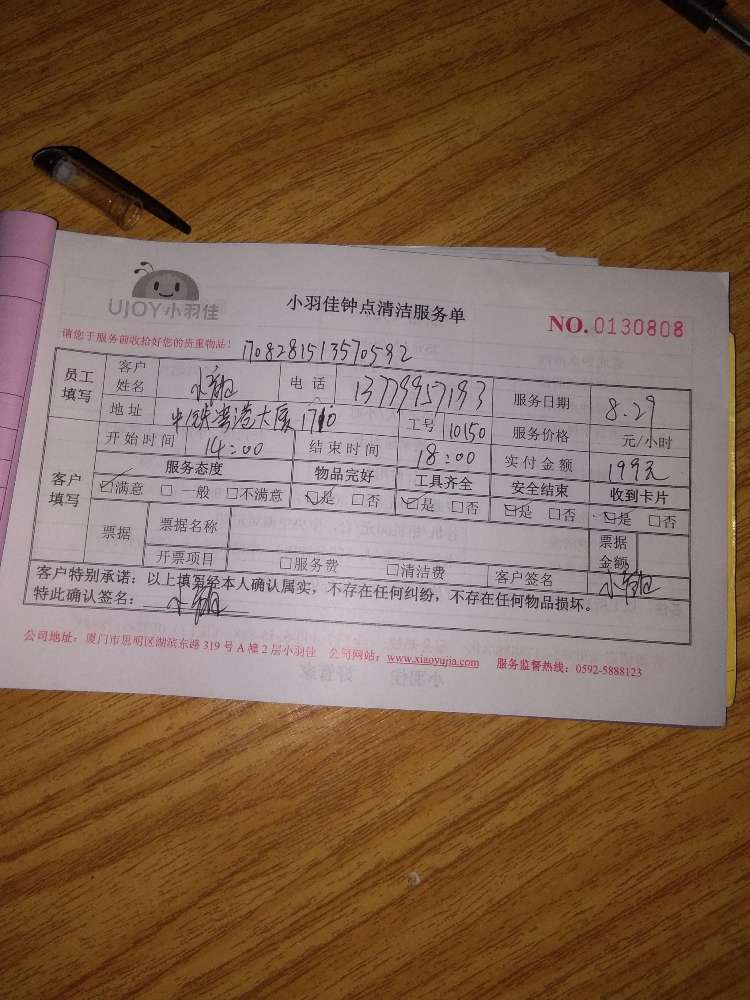 UJOY小羽佳
小羽佳钟点清洁服务单
NO.0130808
请您于服务前收拾好您的贵重物品！
1708281513570592
员工填写 客户姓名 电话 13779957193 服务日期 8.29
地址 大厦1710 工号 10150 服务价格 元/小时
客户填写 开始时间 14:00 结束时间 18:00 实付金额 199元
服务态度 物品完好 工具齐全 安全结束 收到卡片
☑满意 □一般 □不满意 ☑是 □否 ☑是 □否 ☑是 □否 ☑是 □否
票据 票据名称 票据金额
开票项目 □服务费 □清洁费 客户签名
客户特别承诺：以上填写经本人确认属实，不存在任何纠纷，不存在任何物品损坏。
特此确认签名：
公司地址：厦门市思明区湖滨东路319号A幢2层小羽佳 公司网站：www.xiaoyujia.com 服务监督热线：0592-5888123